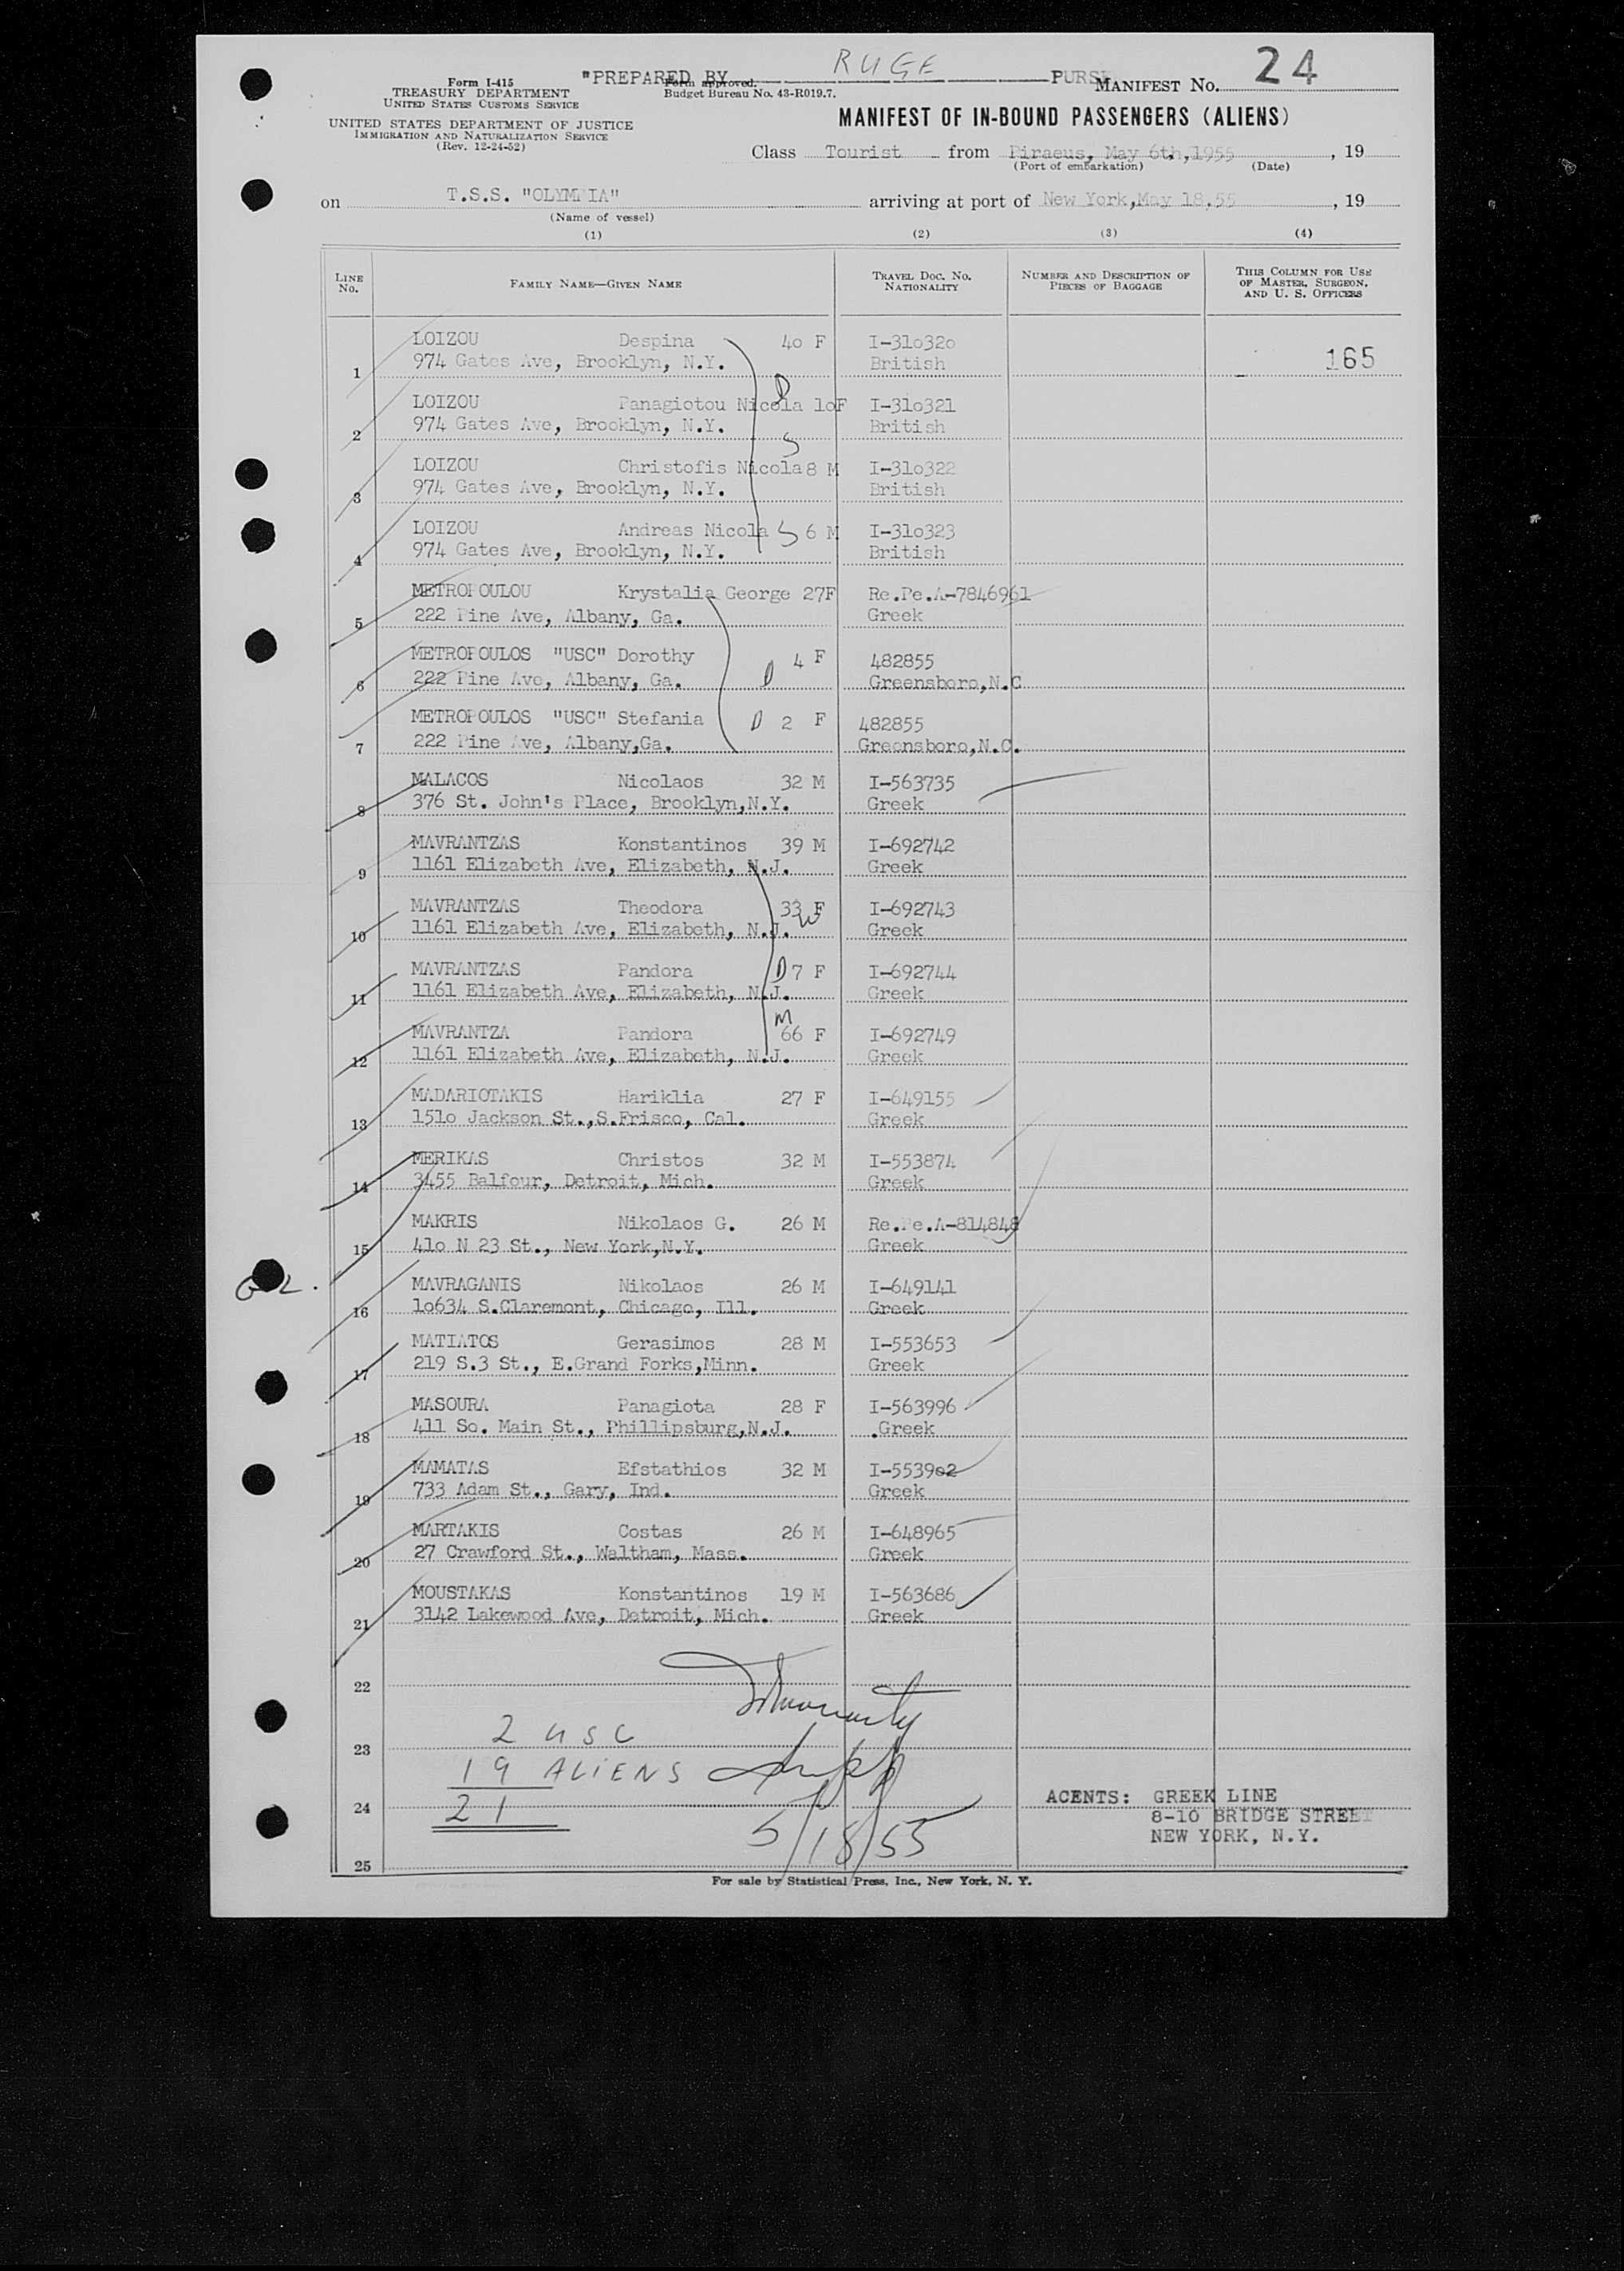 Form I-415
TREASURY DEPARTMENT
UNITED STATES CUSTOMS SERVICE
UNITED STATES DEPARTMENT OF JUSTICE
IMMIGRATION AND NATURALIZATION SERVICE
(Rev. 12-24-52)
"PREPARED BY RUGE PURS
Form approved.
Budget Bureau No. 43-R019.7.
MANIFEST No. 24
MANIFEST OF IN-BOUND PASSENGERS (ALIENS)
Class Tourist from Piraeus, May 6th,1955, 19
(Port of embarkation) (Date)
on T.S.S. "OLYMPIA" arriving at port of New York,May 18.55, 19
(Name of vessel)
(1) (2) (3) (4)
LINE No. FAMILY NAME—GIVEN NAME TRAVEL DOC. No. NATIONALITY NUMBER AND DESCRIPTION OF PIECES OF BAGGAGE THIS COLUMN FOR USE OF MASTER, SURGEON, AND U. S. OFFICERS
LOIZOU Despina 40 F I-310320
1 974 Gates Ave, Brooklyn, N.Y. British 165
D
LOIZOU Panagiotou Nicola 10F I-310321
2 974 Gates Ave, Brooklyn, N.Y. British
S
LOIZOU Christofis Nicola 8 M I-310322
3 974 Gates Ave, Brooklyn, N.Y. British
LOIZOU Andreas Nicola S 6 M I-310323
4 974 Gates Ave, Brooklyn, N.Y. British
METROPOULOU Krystalia George 27F Re.Pe.A-7846961
5 222 Pine Ave, Albany, Ga. Greek
METROPOULOS "USC" Dorothy 4 F 482855
6 222 Pine Ave, Albany, Ga. D Greensboro,N.C
METROPOULOS "USC" Stefania D 2 F 482855
7 222 Pine Ave, Albany,Ga. Greensboro,N.C.
MALACOS Nicolaos 32 M I-563735
8 376 St. John's Place, Brooklyn,N.Y. Greek
MAVRANTZAS Konstantinos 39 M I-692742
9 1161 Elizabeth Ave, Elizabeth, N.J. Greek
MAVRANTZAS Theodora 33 F I-692743
W
10 1161 Elizabeth Ave, Elizabeth, N.J. Greek
MAVRANTZAS Pandora D 7 F I-692744
11 1161 Elizabeth Ave, Elizabeth, N.J. Greek
M
MAVRANTZA Pandora 66 F I-692749
12 1161 Elizabeth Ave, Elizabeth, N.J. Greek
MADARIOTAKIS Hariklia 27 F I-649155
13 1510 Jackson St.,S.Frisco, Cal. Greek
MERIKAS Christos 32 M I-553874
14 3455 Balfour, Detroit, Mich. Greek
MAKRIS Nikolaos G. 26 M Re.Pe.A-814848
15 410 N 23 St., New York,N.Y. Greek
MAVRAGANIS Nikolaos 26 M I-649141
16 10634 S.Claremont, Chicago, Ill. Greek
MATIATOS Gerasimos 28 M I-553653
17 219 S.3 St., E.Grand Forks,Minn. Greek
MASOURA Panagiota 28 F I-563996
18 411 So. Main St., Phillipsburg,N.J. .Greek
MAMATAS Efstathios 32 M I-553902
19 733 Adam St., Gary, Ind. Greek
MARTAKIS Costas 26 M I-648965
20 27 Crawford St., Waltham, Mass. Greek
MOUSTAKAS Konstantinos 19 M I-563686
21 3142 Lakewood Ave, Detroit, Mich. Greek
22
2 USC
23
19 ALIENS
24 21
5/18/55
25
ACENTS: GREEK LINE
8-10 BRIDGE STREET
NEW YORK, N.Y.
For sale by Statistical Press, Inc., New York, N. Y.